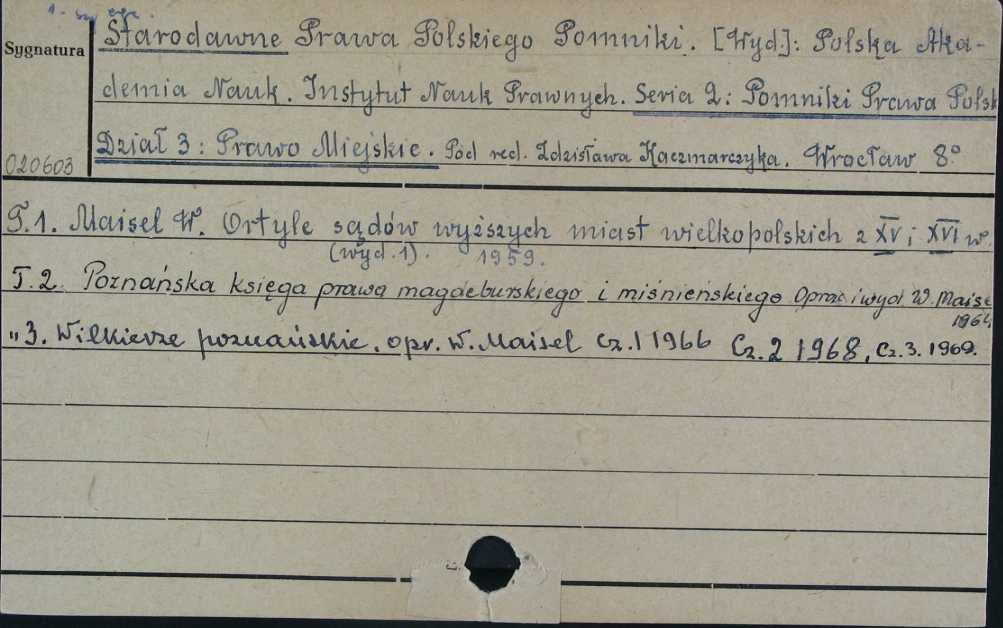 1-szy egz.
Sygnatura
Starodawne Prawa Polskiego Pomniki. [Wyd.]: Polska Aka-
demia Nauk. Instytut Nauk Prawnych. Seria 2: Pomniki Prawa Polsk
Dział 3: Prawo Miejskie. Pod red. Zdzisława Kaczmarczyka. Wrocław 8°
020603
T.1. Maisel W. Ortyle sądów wyższych miast wielkopolskich z XV i XVI w.
(wyd.1). 1959.
T.2. Poznańska księga prawa magdeburskiego i miśnieńskiego Oprac i wyd W. Maise
1964
"3. Wilkierze poznańskie. opr. W. Maisel Cz.1 1966 Cz.2 1968, Cz.3. 1969.